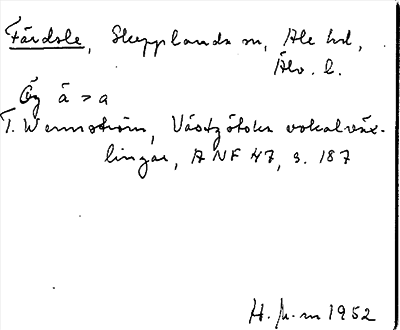 Färdsle, Skepplanda sn, Ale hd,
Älv. l.
Ög å > a
T. Wennström, Västgötska vokalväx-
lingar, ANF 47, s. 187
1952